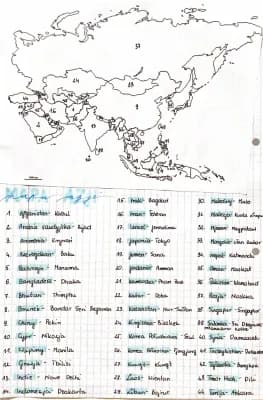 Mapa Azji
1. Afganistan - Kabul
2. Arabia Saudyjska - Rijad
3. Armenia - Erywań
4. Azerbejdżan - Baku
5. Bahrajn - Manama
6. Bangladesz - Dhaka
7. Bhutan - Thimphu
8. Brunei - Bandar Seri Begawan
9. Chiny - Pekin
10. Cypr - Nikozja
11. Filipiny - Manila
12. Gruzja - Tbilisi
13. Indie - Nowe Delhi
14. Indonezja - Dżakarta
15. Irak - Bagdad
16. Iran - Teheran
17. Izrael - Jerozolima
18. Japonia - Tokyo
19. Jemen - Sana
20. Jordania - Amman
21. Kambodża - Phnom Penh
22. Katar - Doha
23. Kazachstan - Nur-Sułtan
24. Kirgistan - Biszkek
25. Korea Południowa - Seul
26. Korea Północna - Pjongjang
27. Kuwejt - Kuwejt
28. Laos - Wientian
29. Liban - Bejrut
30. Malediwy - Male
31. Malezja - Kuala Lumpur
32.
33. Mongolia - Ułan Bator
34. Nepal - Katmandu
35. Oman - Maskat
36. Pakistan - Islamabad
37. Rosja - Moskwa
38. Singapur - Singapur
39. Sri
40. Syria - Damaszek
41. Tadżykistan - Duszanbe
42. Tajlandia - Bangkok
43. Timor Wsch. - Dili
44. Turcja - Ankara